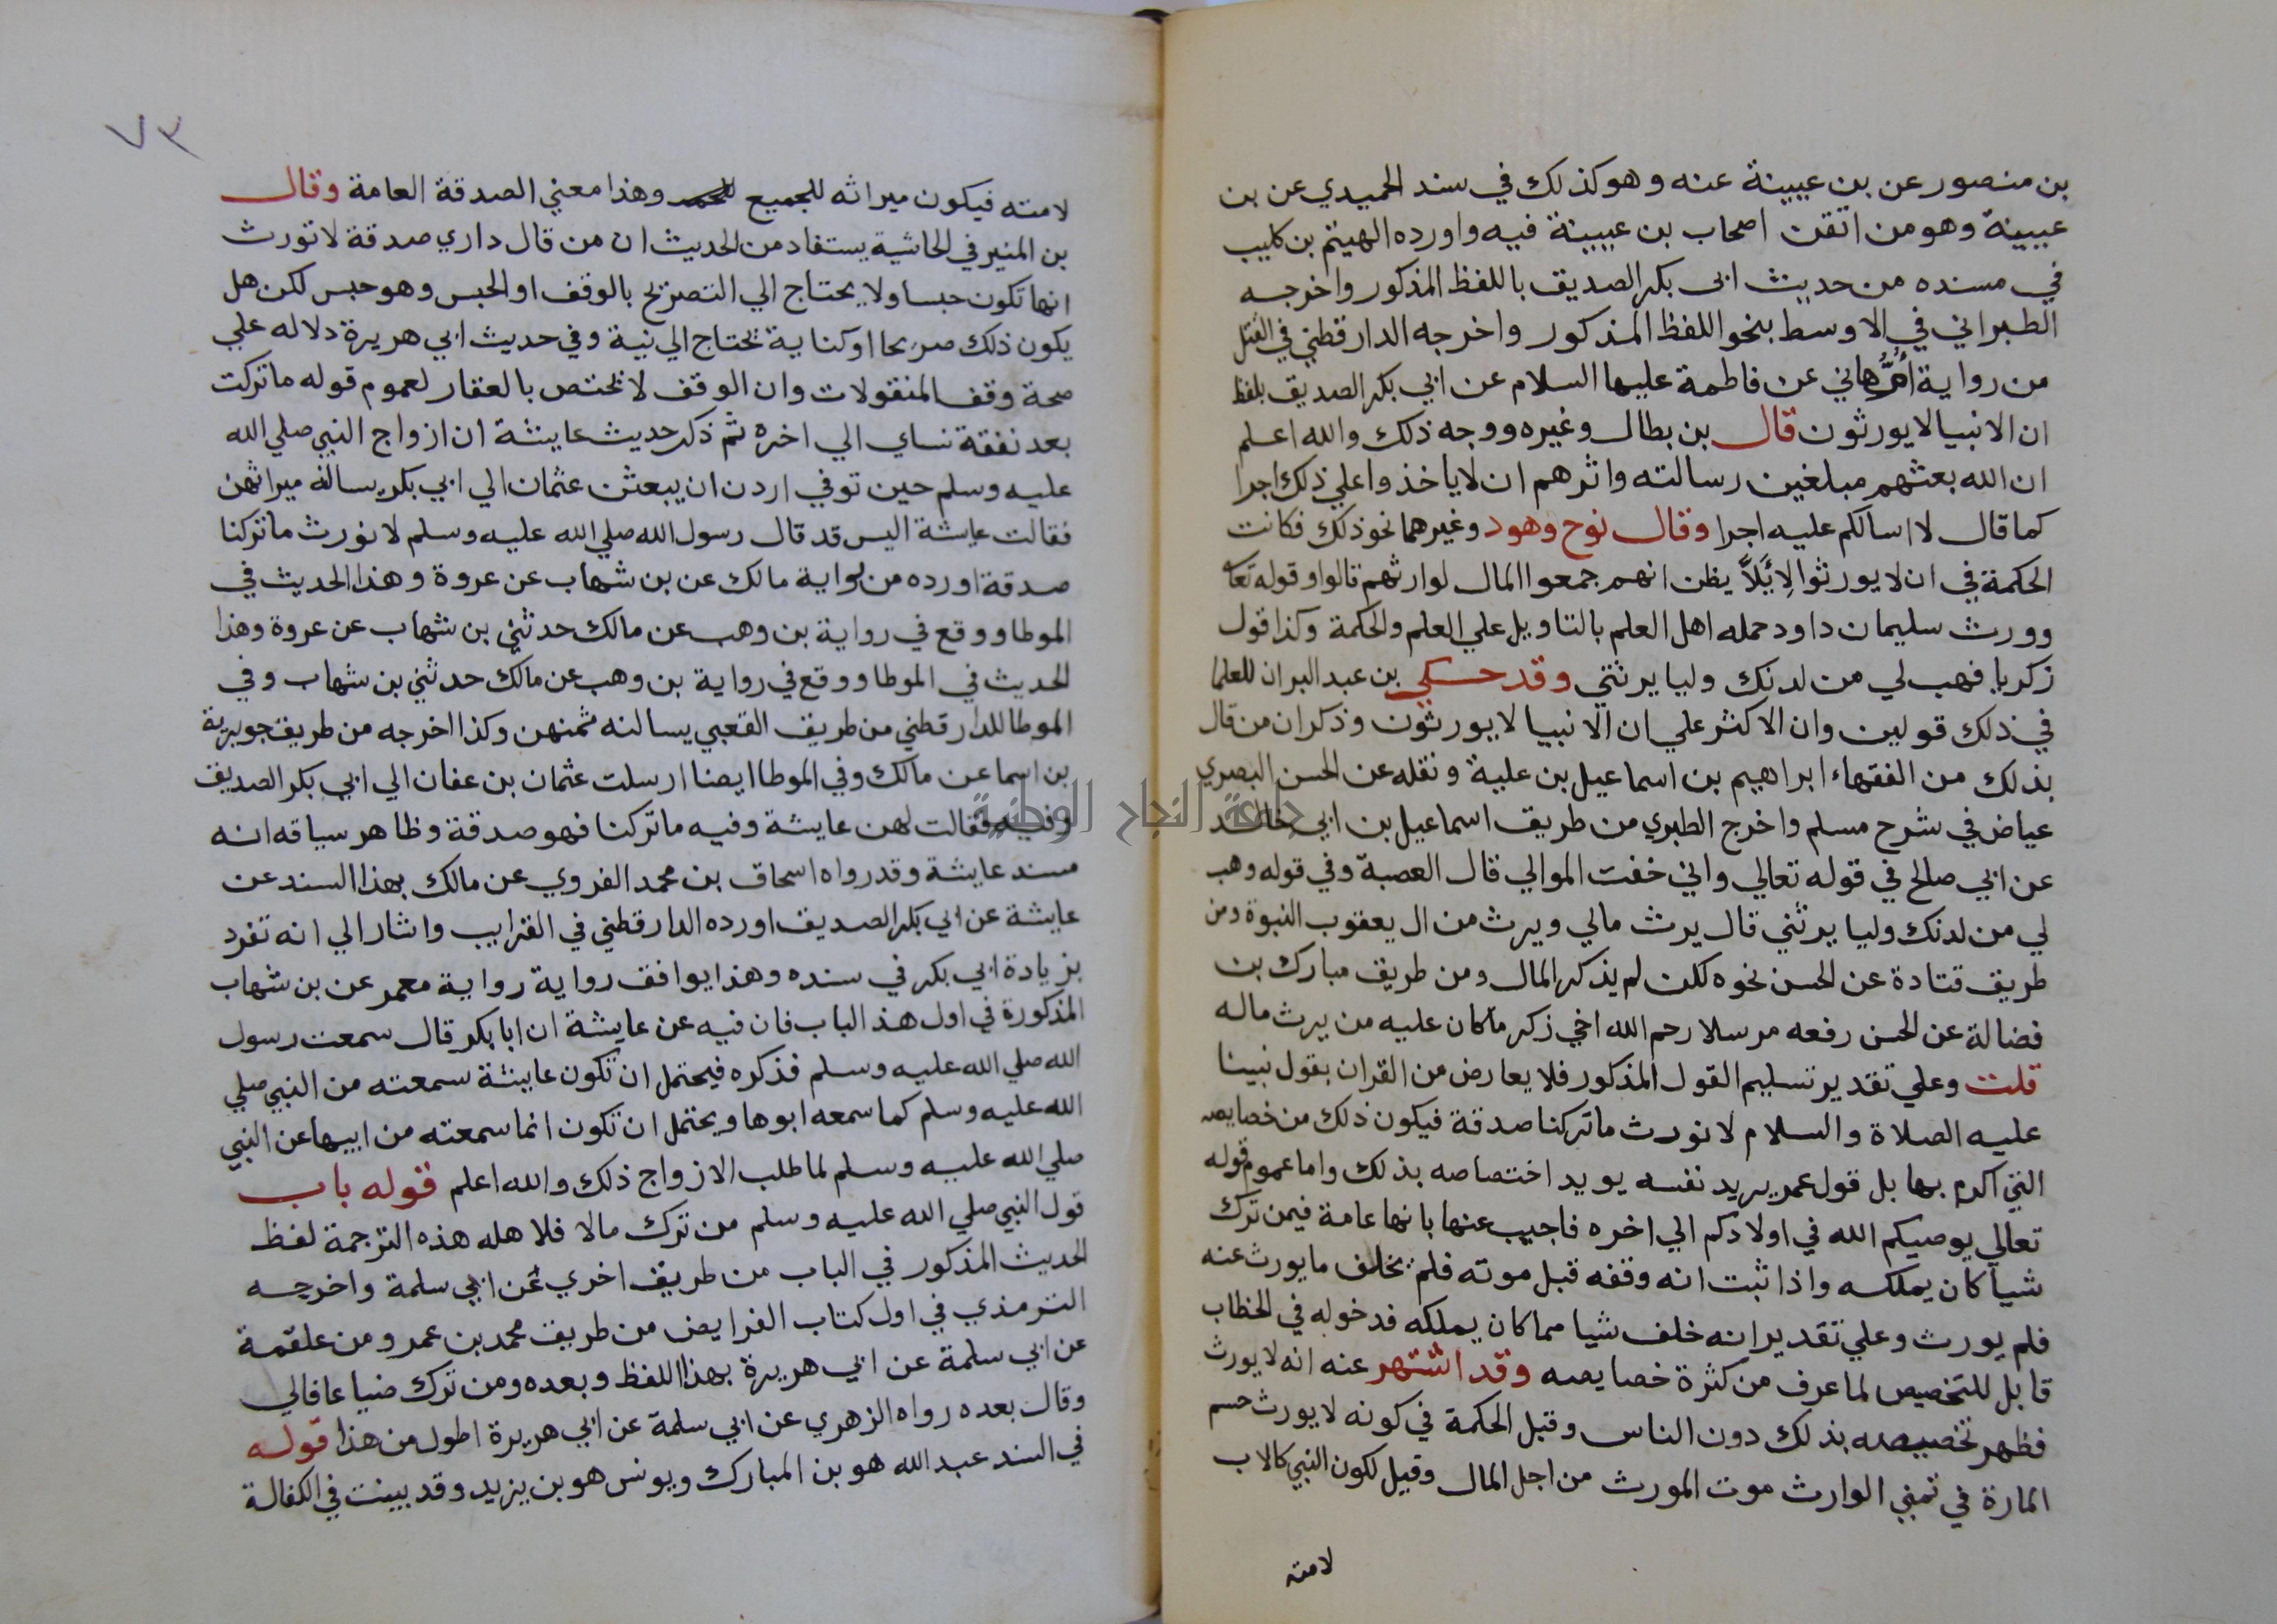 بن منصور عن بن عيينة عنه وهو كذلك في سند الحميدي عن بن
عيينة وهو من اتقن اصحاب بن عيينة فيه واورده الهيثم بن كليب
في مسنده من حديث ابى بكر الصديق باللفظ المذكور واخرجه
الطبراني في الاوسط بنحو اللفظ المذكور واخرجه الدارقطني في
من رواية ام هاني عن فاطمة عليها السلام عن ابي بكر الصديق بلفظ
ان الانبيا لا يورثون قال بن بطال وغيره ووجه ذلك والله اعلم
ان الله بعثهم مبلغين رسالته واثرهم ان لا ياخذوا علي ذلك اجرا
كما قال لا اسالكم عليه اجرا وقال نوح وهود وغيرهما نحو ذلك فكانت
الحكمة في ان لا يورثوا لِئَلاَّ يظن انهم جمعوا المال لوارثهم قالوا وقوله تعا
وورث سليمان داود حمله اهل العلم بالتاويل علي العلم والحكمة وكذا قول
زكريا فهب لي من لدنك وليا يرثني وقد حكي بن عبد البر ان للعلما
في ذلك قولين وان الاكثر علي ان الانبيا لا يورثون وذكر ان من قال
بذلك من الفقهاء ابراهيم بن اسماعيل بن علية ونقله عن الحسن البصري
عياض في شرح مسلم واخرج الطبري من طريق اسماعيل بن ابي خالد
عن ابي صالح في قوله تعالي واني خفت الموالي قال العصبة وفي قوله وهب
لي من لدنك وليا يرثني قال يرث مالي ويرث من ال يعقوب النبوة ومن
طريق قتادة عن الحسن نحوه لكن لم يذكر المال ومن طريق مبارك بن
فضالة عن الحسن رفعه مرسلا رحم الله اخي زكريا ما كان عليه من يرث ماله
قلت وعلي تقدير تسليم القول المذكور فلا يعارض من القران بقول نبينا
عليه الصلاة والسلام لا نورث ما تركنا صدقة فيكون ذلك من خصايصه
التي اكرم بها بل قول عمر يريد نفسه يويد اختصاصه بذلك واما عموم قوله
تعالي يوصيكم الله في اولادكم الي اخره فاجيب عنها بانها عامة فيمن ترك
شيآ كان يملكه واذا ثبت انه وقفه قبل موته فلم يخلف ما يورث عنه
فلم يورث وعلي تقدير انه خلف شيا مما كان يملكه فدخوله في الخطاب
قابل للتخصيص لما عرف من كثرة خصايصه وقد اشتهر عنه انه لا يورث
فظهر تخصيصه بذلك دون الناس وقيل الحكمة في كونه لا يورث حسم
المارة في تمني الوارث موت المورث من اجل المال وقيل لكون النبي كالاب
لامته
٧٣
لامته فيكون ميراثه للجميع وهذا معني الصدقة العامة وقال
بن المنير في الحاشية يستفاد من الحديث ان من قال داري صدقة لا تورث
انها تكون حبسا ولا يحتاج الي التصريح بالوقف او الحبس وهو حبس لكن هل
يكون ذلك صريحا او كناية تحتاج الي نية وفي حديث ابي هريرة دلاله علي
صحة وقف المنقولات وان الوقف لا يختص بالعقار لعموم قوله ما تركت
بعد نفقة نساي الي اخره ثم ذكر حديث عايشة ان ازواج النبي صلي الله
عليه وسلم حين توفي اردن ان يبعثن عثمان الي ابي بكر يسالنه ميراثهن
فقالت عايشة اليس قد قال رسول الله صلي الله عليه وسلم لا نورث ما تركنا
صدقة اورده من رواية مالك عن بن شهاب عن عروة وهذا الحديث في
الموطا ووقع في رواية بن وهب عن مالك حدثني بن شهاب عن عروة وهذا
الحديث في الموطا ووقع في رواية بن وهب عن مالك حدثني بن شهاب وفي
الموطا للدارقطني من طريق القعبي يسالنه ثمنهن وكذا اخرجه من طريق جويرية
بن اسما عن مالك وفي الموطا ايضا ارسلت عثمان بن عفان الي ابي بكر الصديق
وفيه فقالت لهن عايشة وفيه ما تركنا فهو صدقة وظاهر سياقه انه
مسند عايشة وقد رواه اسحاق بن محمد الفروي عن مالك بهذا السند عن
عايشة عن ابي بكر الصديق اورده الدارقطني في الغرايب واشار الي انه تفرد
بزيادة ابي بكر في سنده وهذا يوافق رواية رواية معمر عن بن شهاب
المذكورة في اول هذ الباب فان فيه عن عايشة ان ابا بكر قال سمعت رسول
الله صلي الله عليه وسلم فذكره فيحتمل ان تكون عايشة سمعته من النبي صلي
الله عليه وسلم كما سمعه ابوها ويحتمل ان تكون انما سمعته من ابيها عن النبي
صلي الله عليه وسلم لما طلب الازواج ذلك والله اعلم قوله باب
قول النبي صلي الله عليه وسلم من ترك مالا فلاهله هذه الترجمة لفظ
الحديث المذكور في الباب من طريق اخري عن ابي سلمة واخرجه
الترمذي في اول كتاب الفرايض من طريق محمد بن عمرو من علقمة
عن ابي سلمة عن ابي هريرة بهذا اللفظ وبعده ومن ترك ضياعا فالي
وقال بعده رواه الزهري عن ابي سلمة عن ابي هريرة اطول من هذا قوله
في السند عبد الله هو بن المبارك ويونس هو بن يزيد وقد بينت في الكفالة
جامعة النجاح الوطنية